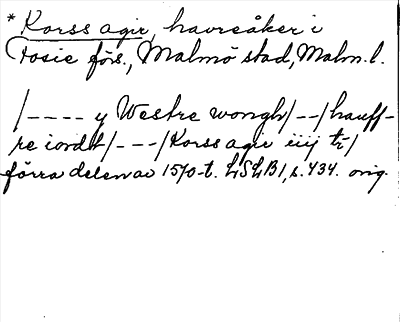 * Korss agir, havreåker i
Fosie förs., Malmö stad, Malm. l.
/---- y Westre wongh/--/hauff-
re iordt/---/Korss agir iiij tr/
förra delen av 1570-t. LSLB1, s. 434. orig.